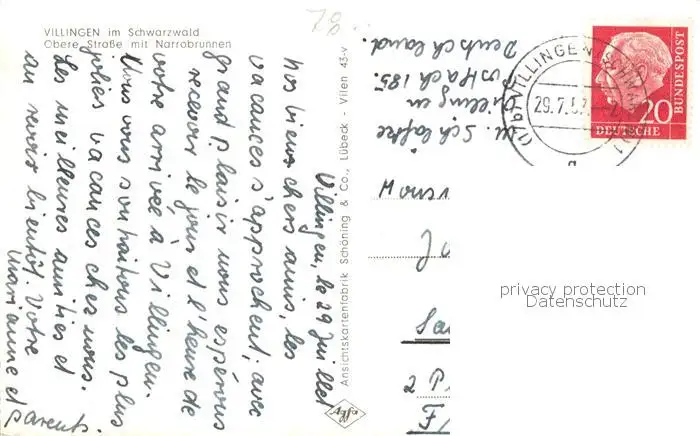 VILLINGEN im Schwarzwald
Obere Straße mit Narrobrunnen
78
Villingen, le 29 juillet
Nos bien chers amis, les
vacances s'approchent; avec
grand plaisir nous espérons
recevoir le jour et l'heure de
votre arrivée à Villingen.
Nous vous souhaitons les plus
jolies vacances chez nous.
Les meilleures amitiés et
au revoir bientôt. Votre
Marianne et
parents.
Ansichtskartenfabrik Schöning & Co., Lübeck - Vilen 43-v
Agfa
Villingen
Postfach 185.
Deutschland.
VILLINGEN (SCHWARZW)
29.7.57
DEUTSCHE
BUNDESPOST
20
2 P
F/
privacy protection
Datenschutz